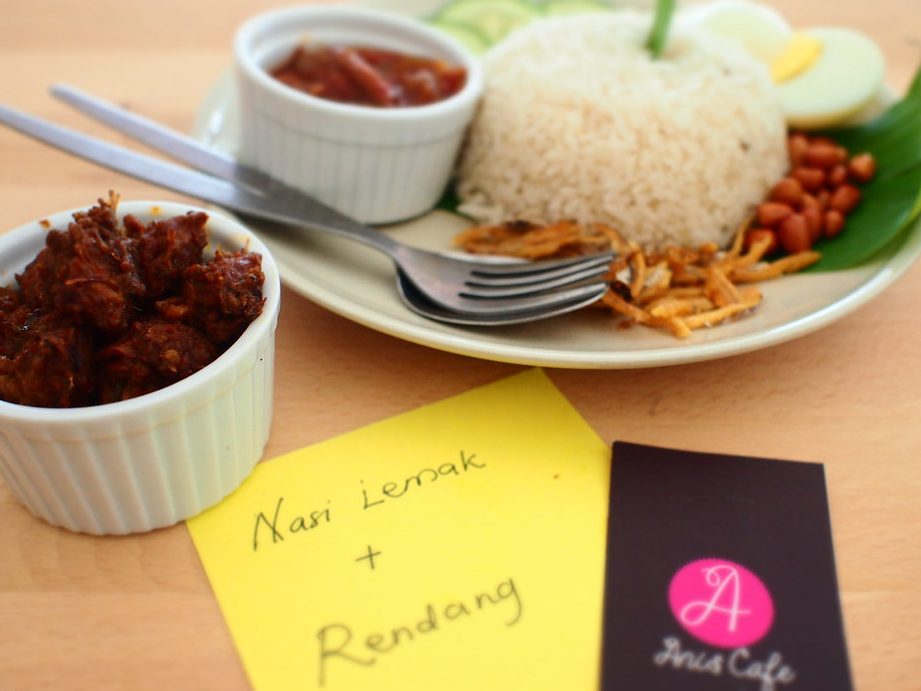 Nasi Lemak
+
Rendang
A
Anis Cafe